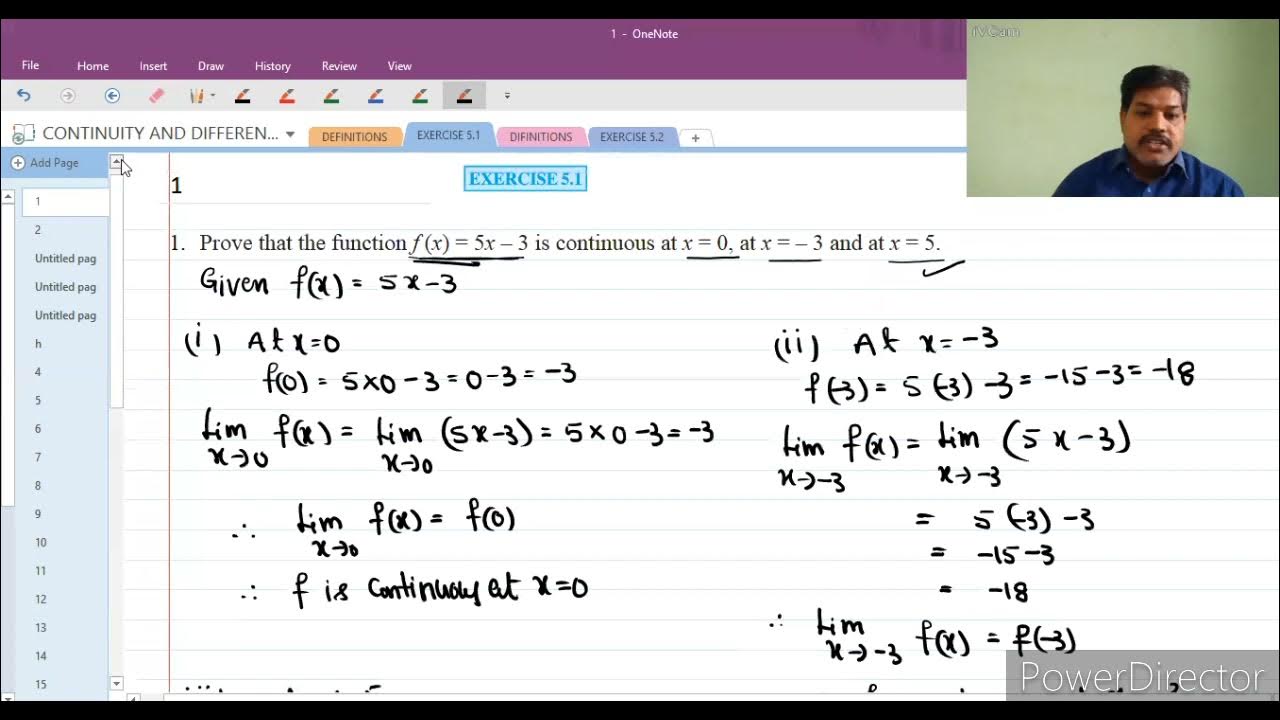 1 - OneNote
iVCam
File Home Insert Draw History Review View
CONTINUITY AND DIFFEREN... DEFINITIONS EXERCISE 5.1 DIFINITIONS EXERCISE 5.2 +
Add Page
1
2
Untitled pag
Untitled pag
Untitled pag
h
4
5
6
7
8
9
10
11
12
13
14
15
1
EXERCISE 5.1
1. Prove that the function f (x) = 5x – 3 is continuous at x = 0, at x = – 3 and at x = 5.
Given f(x) = 5x-3
(i) At x=0
f(0) = 5×0-3=0-3=-3
Lim f(x) = Lim (5x-3) = 5×0-3=-3
x→0 x→0
∴ Lim f(x) = f(0)
x→0
∴ f is continuous at x=0
(ii) At x=-3
f(-3) = 5(-3)-3=-15-3=-18
Lim f(x) = Lim (5x-3)
x→-3 x→-3
= 5(-3)-3
= -15-3
= -18
∴ Lim f(x) = f(-3)
x→-3
PowerDirector